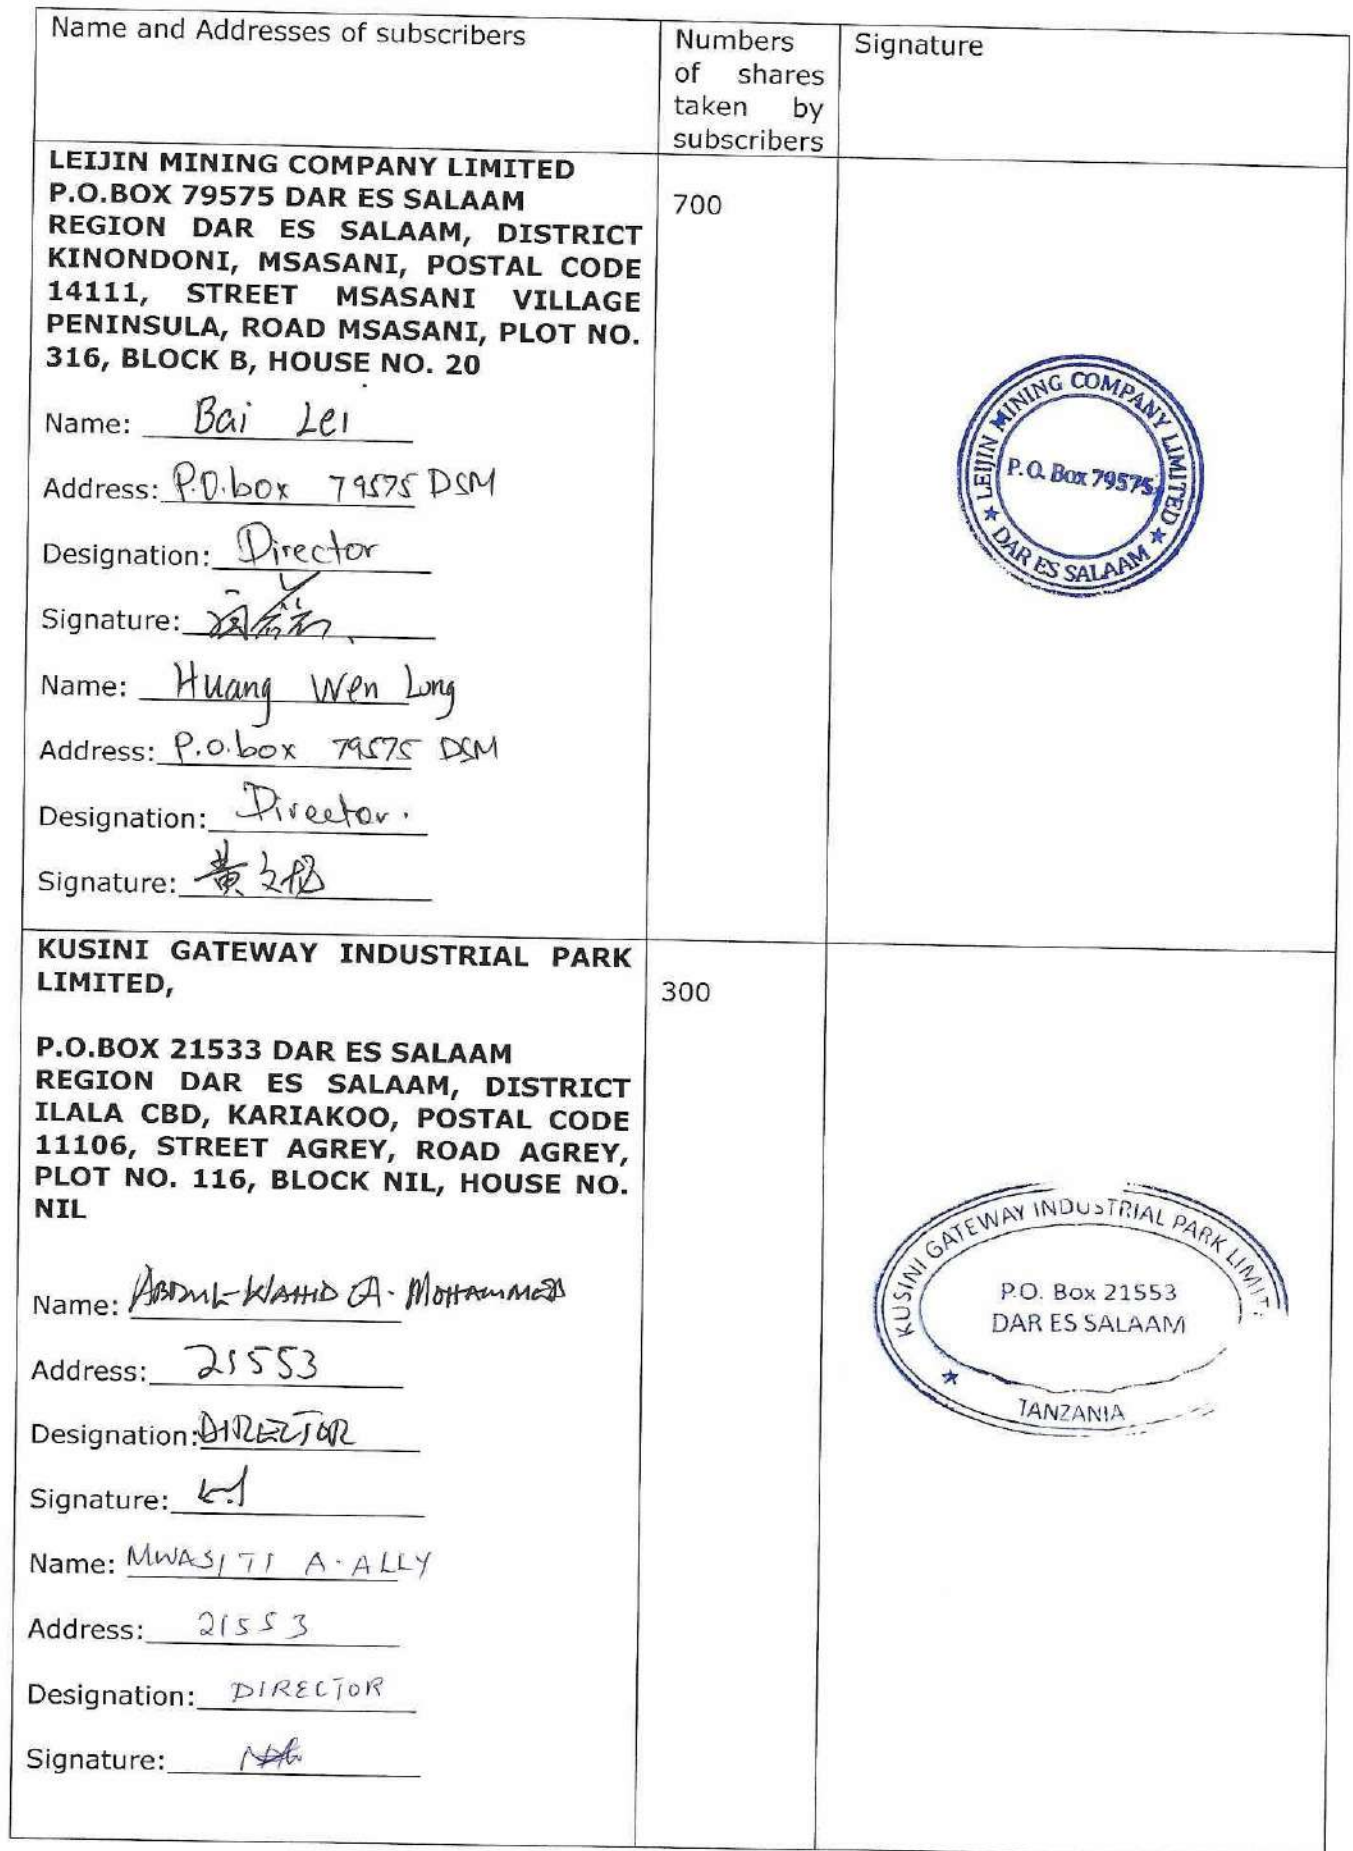 Name and Addresses of subscribers
Numbers
of shares
taken by
subscribers
Signature
LEIJIN MINING COMPANY LIMITED
P.O.BOX 79575 DAR ES SALAAM
REGION DAR ES SALAAM, DISTRICT
KINONDONI, MSASANI, POSTAL CODE
14111, STREET MSASANI VILLAGE
PENINSULA, ROAD MSASANI, PLOT NO.
316, BLOCK B, HOUSE NO. 20
700
Name: Bai Lei
Address: P.O.box 79575 DSM
Designation: Director
Signature:
Name: Huang Wen Long
Address: P.O.box 79575 DSM
Designation: Director.
Signature: 黄文
LEIJIN MINING COMPANY LIMITED
P.O. Box 79575
★ DAR ES SALAAM ★
KUSINI GATEWAY INDUSTRIAL PARK
LIMITED,
300
P.O.BOX 21533 DAR ES SALAAM
REGION DAR ES SALAAM, DISTRICT
ILALA CBD, KARIAKOO, POSTAL CODE
11106, STREET AGREY, ROAD AGREY,
PLOT NO. 116, BLOCK NIL, HOUSE NO.
NIL
Name: ABDUL-WAHID A. MOHAMMED
Address: 21553
Designation: DIRECTOR
Signature:
Name: MWASITI A. ALLY
Address: 21553
Designation: DIRECTOR
Signature:
KUSINI GATEWAY INDUSTRIAL PARK LIMIT
P.O. Box 21553
DAR ES SALAAM
★ TANZANIA